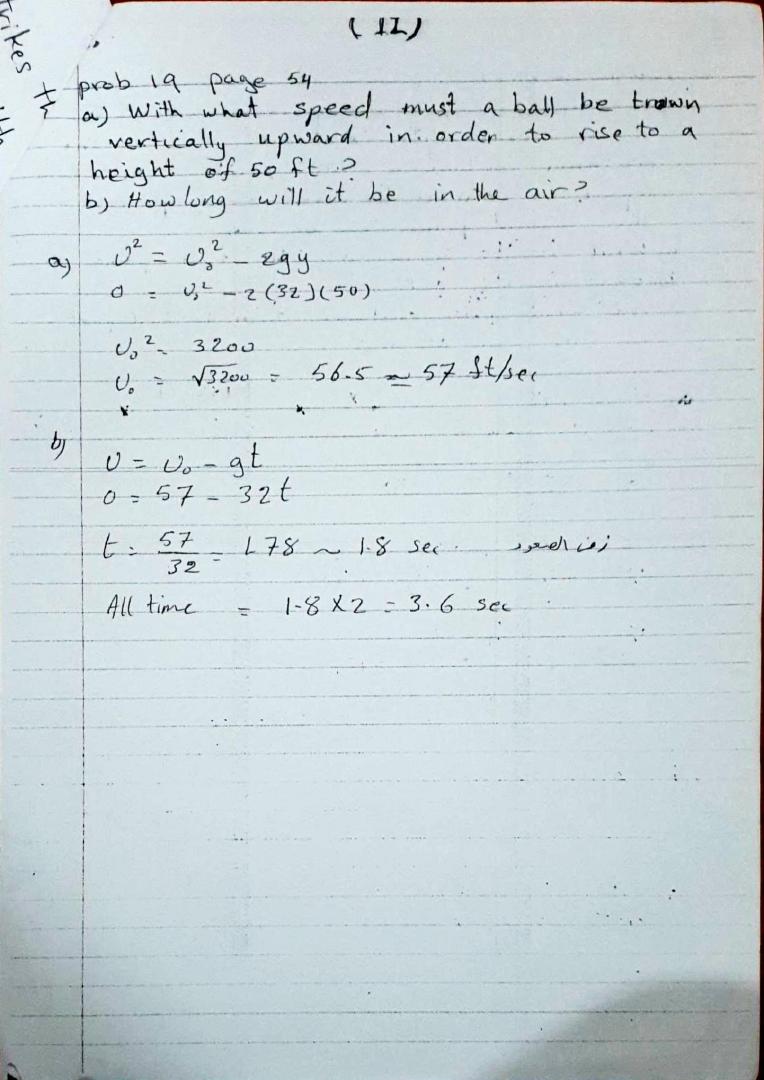 (12)
prob 19 page 54
a) With what speed must a ball be trown
vertically upward in order to rise to a
height of 50 ft ?
b) How long will it be in the air ?
a) υ² = υ₀² - 2gy
0 = υ₀² - 2(32)(50)
υ₀² = 3200
υ₀ = √3200 = 56.5 ≃ 57 ft/sec
b) υ = υ₀ - gt
0 = 57 - 32t
t = 57/32 = 1.78 ~ 1.8 sec زمن الصعود
All time = 1.8 X 2 = 3.6 sec
trikes th